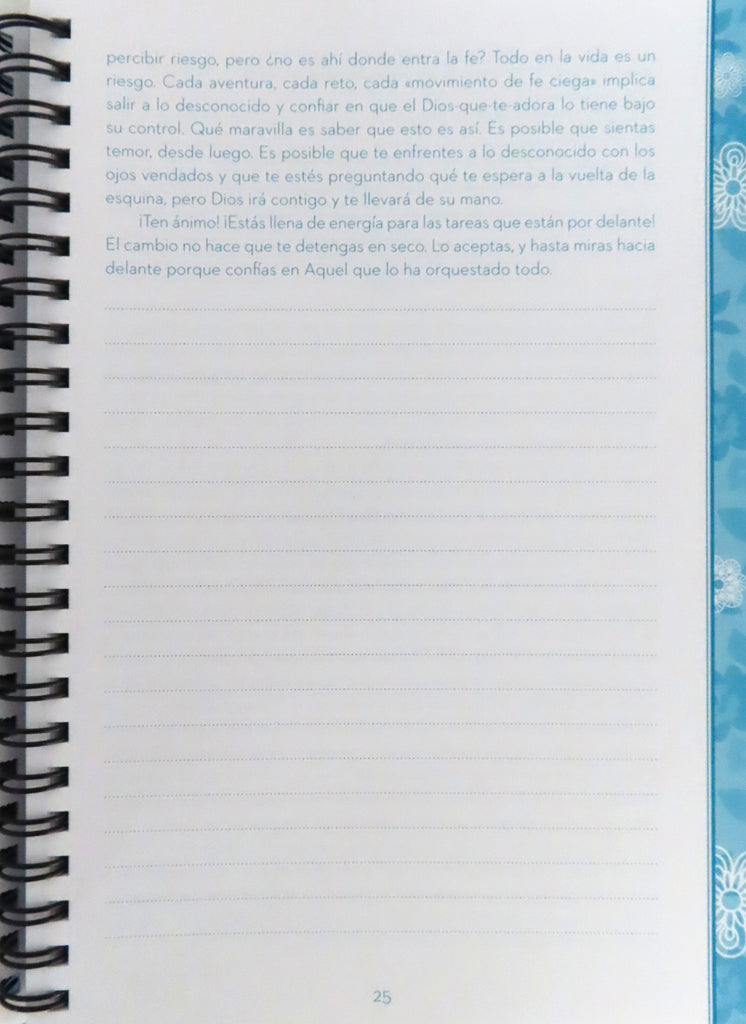 percibir riesgo, pero ¿no es ahí donde entra la fe? Todo en la vida es un
riesgo. Cada aventura, cada reto, cada «movimiento de fe ciega» implica
salir a lo desconocido y confiar en que el Dios-que-te-adora lo tiene bajo
su control. Qué maravilla es saber que esto es así. Es posible que sientas
temor, desde luego. Es posible que te enfrentes a lo desconocido con los
ojos vendados y que te estés preguntando qué te espera a la vuelta de la
esquina, pero Dios irá contigo y te llevará de su mano.
¡Ten ánimo! ¡Estás llena de energía para las tareas que están por delante!
El cambio no hace que te detengas en seco. Lo aceptas, y hasta miras hacia
delante porque confías en Aquel que lo ha orquestado todo.
25